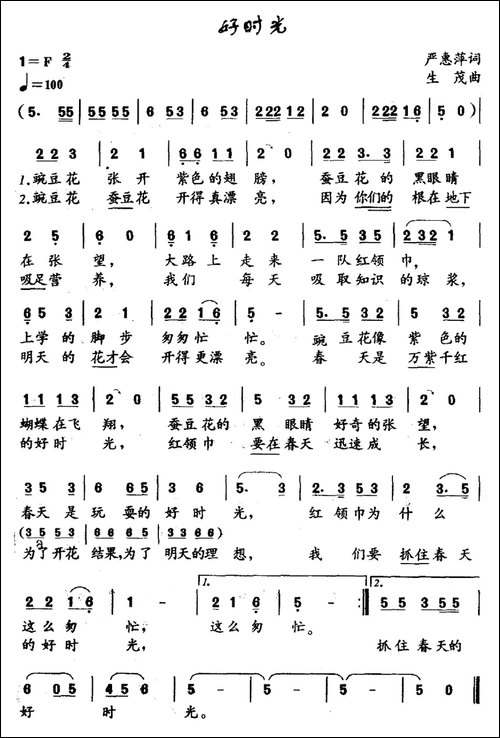 好时光
1=F 2/4
严惠萍词
♩=100
生 茂曲
(5. 55 | 5555 55 | 6 53 | 6 53 | 222 12 | 2 0 | 222 16 | 5 0) |
2 2 3 | 2 1 | 6 6 1 1 | 2 0 | 2 2 3. 3 | 2 2 1 |
1.豌豆花 张 开 紫色的翅 膀, 蚕豆花的 黑眼睛
2.豌豆花 蚕豆花 开得真漂 亮, 因为你们的 根在地下
2 5 | 6 0 | 6 1 6 | 2 2 | 5. 5 3 5 | 2 3 2 1 |
在 张 望, 大路上 走 来 一队红领 巾,
吸足营 养, 我们 每 天 吸取知识 的琼 浆,
6 5 3 | 2 1 | 2 2 1 6 | 5 - | 5. 3 2 3 | 5 5 3 |
上学的 脚 步 匆匆忙 忙。 豌豆花像 紫色的
明天的 花才会 开得更漂 亮。 春 天是 万紫千红
1 1 1 3 | 2 0 | 5 5 3 2 | 5 5 3 | 1 1 1 3 | 2 0 |
蝴蝶在飞 翔, 蚕豆花的 黑 眼睛 好奇的张 望,
的好时 光, 红领巾 要在春天 迅速成 长,
3 5 3 | 6 6 5 | 3 3 6 | 5. 3 | 2. 3 5 3 | 2 3. 5 |
春天是 玩耍的 好时 光, 红领巾为 什么
(3 5 5 3 | 6 6 6 5 | 3 3 6 6)
为了开花 结果,为了 明天的理 想, 我 们要 抓住春天
2 2 1 6 | 1 - | 2 1 6 | 5 - :‖ 5 5 3 5 5 |
1.
2.
这么匆 忙, 这么匆 忙。
的好时 光, 抓住春天的
6 0 5 | 4 5 6 | 5 - | 5 - | 5 - | 5 0 ‖
好 时 光。